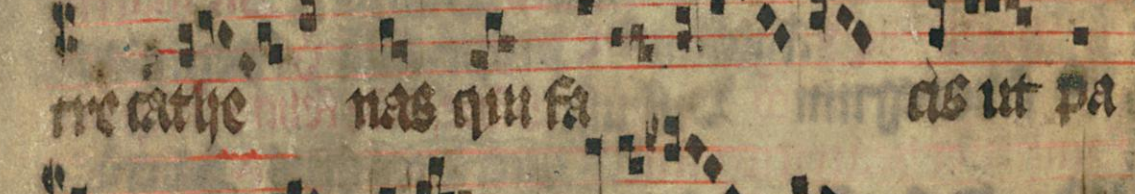 rre cathe nas qui fa cis ut pa